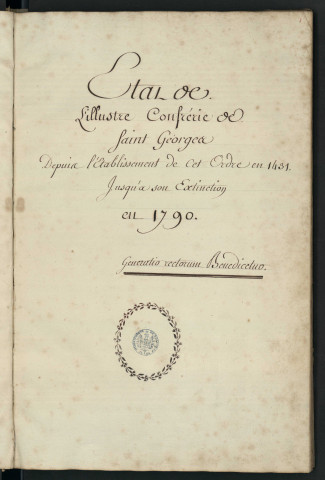 Etat de
L'illustre Confrérie de
Saint Georges
Depuis l'établissement de cet Ordre en 1431.
Jusqu'à son Extinction
en 1790.
Generatio rectorum Benedicetur.